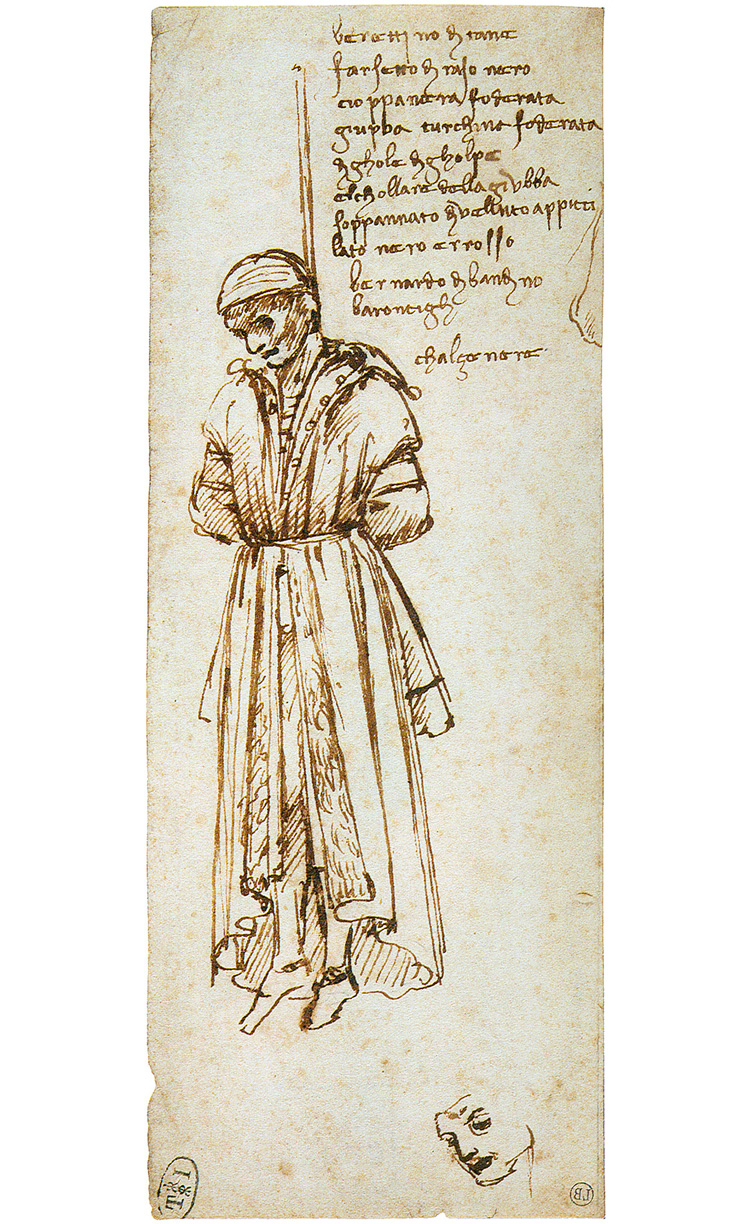 berettino di tane
farsetto di raso nero
cioppa nera foderata
giubba turchina foderata
di ghole di gholpe
elchollare della giubba
soppannato di velluto appicci
lato nero e rosso
bernardo di bandino
baroncigli
chalçe nere